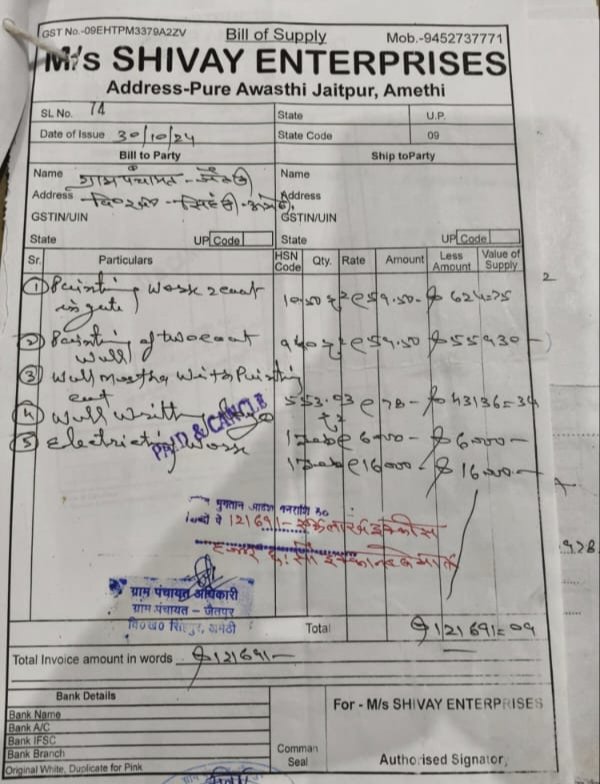 GST No.-09EHTPM3379A2ZV Bill of Supply Mob.-9452737771
M/s SHIVAY ENTERPRISES
Address-Pure Awasthi Jaitpur, Amethi
SL No. 74 State U.P.
Date of Issue 30/10/24 State Code 09
Bill to Party Ship toParty
Name ग्राम पंचायत - जैतपुर Name
Address Address
GSTIN/UIN GSTIN/UIN
State UP Code State UP Code
Sr. Particulars HSN Code Qty. Rate Amount Less Amount Value of Supply
① Painting work 2 coat 10.50 @ 59.50 - 624=75
in gate
② Painting of two coat 940 @ 59.50 55930 -
wall
③ Wall with Painting
553.03 @ 78 - 43136=34
④ Wall @ 6000 - 6000 -
⑤ Work @ 16000 - 16000 -
PAID & CANCLE
2
भुगतान आदेश धनराशि रु०
121691/-
928
ग्राम पंचायत अधिकारी
ग्राम पंचायत – जैतपुर
वि०ख० सिंहपुर, अमेठी
Total 121691=09
Total Invoice amount in words 121691/-
Bank Details For - M/s SHIVAY ENTERPRISES
Bank Name
Bank A/C
Bank IFSC
Bank Branch
Original White, Duplicate for Pink
Comman Seal
Authorised Signator,